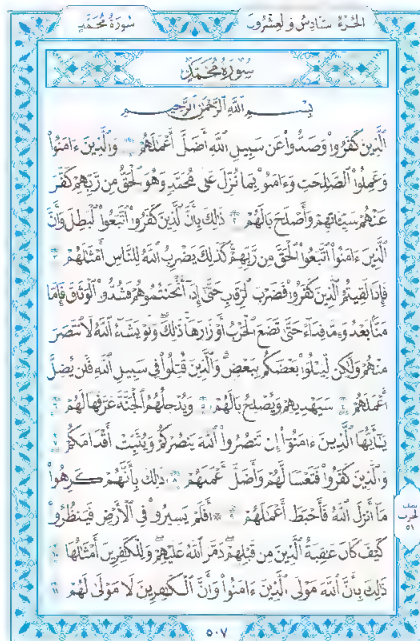 الجزء السادس والعشرون
سورة محمد
سورة محمد
بسم الله الرحمن الرحيم
الذين كفروا وصدوا عن سبيل الله أضل أعملهم ١ والذين ءامنوا
وعملوا الصلحت وءامنوا بما نزل على محمد وهو الحق من ربهم كفر
عنهم سيئاتهم وأصلح بالهم ٢ ذلك بأن الذين كفروا اتبعوا البطل وأن
الذين ءامنوا اتبعوا الحق من ربهم كذلك يضرب الله للناس أمثلهم ٣
فإذا لقيتم الذين كفروا فضرب الرقاب حتى إذا أثخنتموهم فشدوا الوثاق فإما
منا بعد وإما فداء حتى تضع الحرب أوزارها ذلك ولو يشاء الله لانتصر
منهم ولكن ليبلوا بعضكم ببعض والذين قتلوا في سبيل الله فلن يضل
أعملهم ٤ سيهديهم ويصلح بالهم ٥ ويدخلهم الجنة عرفها لهم ٦
يأيها الذين ءامنوا إن تنصروا الله ينصركم ويثبت أقدامكم ٧
والذين كفروا فتعسا لهم وأضل أعملهم ٨ ذلك بأنهم كرهوا
ما أنزل الله فأحبط أعملهم ٩ أفلم يسيروا في الأرض فينظروا
كيف كان عقبة الذين من قبلهم دمر الله عليهم وللكفرين أمثلها ١٠
ذلك بأن الله مولى الذين ءامنوا وأن الكفرين لا مولى لهم ١١
نصف
الحزب
٥١
٥٠٧